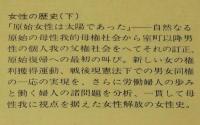 女性の歴史（下）
「原始女性は太陽であった」――自然なる
原始の母性我的母権社会から室町以降男
性の個人我の父権社会をへてそれの訂正、
原始復帰への最初の叫び。新しい女の権
利獲得運動、戦後現憲法下での男女同権
の一応の実現を、さらに労働婦人の歩み
と働く婦人の諸問題を分析、一貫して母
性我に視点を据えた女性解放の女性史。